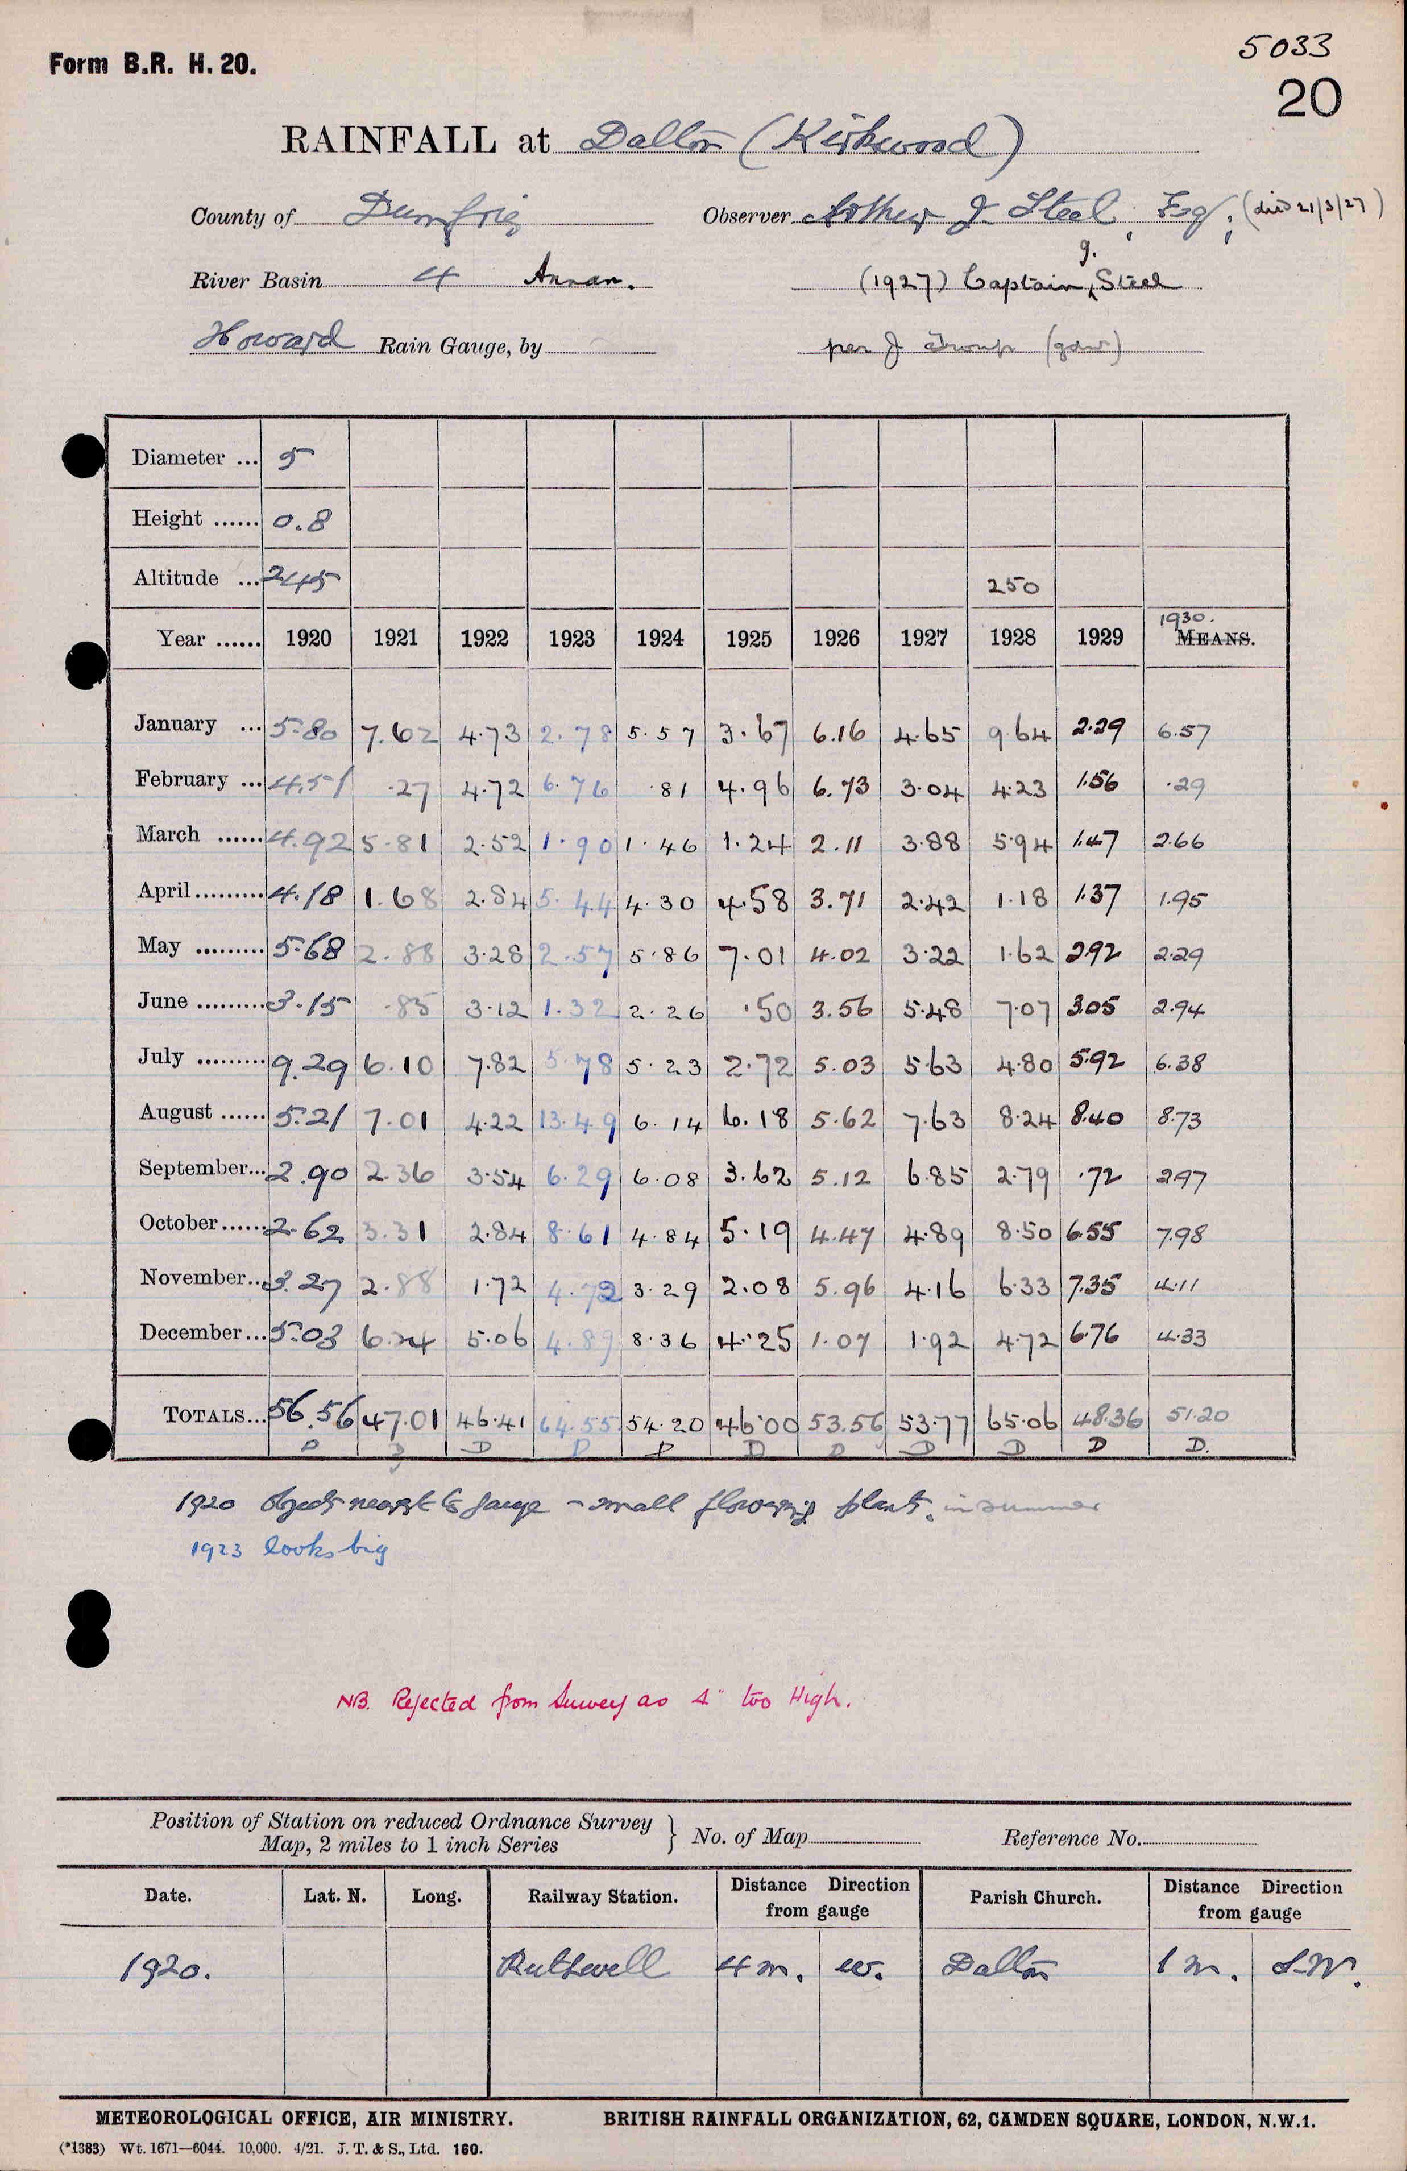 5033
Form B.R. H. 20.
20
RAINFALL at Dalton (Kirkwood)
County of Dumfries Observer Arthur J Steel, Esq; (died 21/3/27)
River Basin 4 Annan. (1927) Captain g. Steel
Howard Rain Gauge, by per J Troup (gdnr)
Diameter ... 5
Height ...... 0.8
Altitude ... 245 250
Year ...... 1920 1921 1922 1923 1924 1925 1926 1927 1928 1929 1930. MEANS.
January ... 5.80 7.62 4.73 2.78 5.57 3.67 6.16 4.65 9.64 2.29 6.57
February ... 4.51 .27 4.72 6.76 .81 4.96 6.73 3.04 4.23 1.56 .29
March ...... 4.92 5.81 2.52 1.90 1.46 1.24 2.11 3.88 5.94 1.47 2.66
April ......... 4.18 1.68 2.84 5.44 4.30 4.58 3.71 2.42 1.18 1.37 1.95
May ......... 5.68 2.88 3.28 2.57 5.86 7.01 4.02 3.22 1.62 2.92 2.29
June ......... 3.15 .85 3.12 1.32 2.26 .50 3.56 5.48 7.07 3.05 2.94
July ......... 9.29 6.10 7.82 5.78 5.23 2.72 5.03 5.63 4.80 5.92 6.38
August ...... 5.21 7.01 4.22 13.49 6.14 6.18 5.62 7.63 8.24 8.40 8.73
September... 2.90 2.36 3.54 6.29 6.08 3.62 5.12 6.85 2.79 .72 2.97
October...... 2.62 3.31 2.84 8.61 4.84 5.19 4.47 4.89 8.50 6.55 7.98
November... 3.27 2.88 1.72 4.72 3.29 2.08 5.96 4.16 6.33 7.35 4.11
December... 5.03 6.24 5.06 4.89 8.36 4.25 1.07 1.92 4.72 6.76 4.33
TOTALS... 56.56 47.01 46.41 64.55 54.20 46.00 53.56 53.77 65.06 48.36 51.20
D D D D D D D D D D D.
1920 Objects nearest to gauge - small flowering plants. in summer
1923 looks big
NB. Rejected from Survey as 4" too High.
Position of Station on reduced Ordnance Survey
Map, 2 miles to 1 inch Series } No. of Map Reference No.
Date. Lat. N. Long. Railway Station. Distance Direction from gauge Parish Church. Distance Direction from gauge
1920. Ruthwell 4 m. W. Dalton 1 m. S.W.
METEOROLOGICAL OFFICE, AIR MINISTRY. BRITISH RAINFALL ORGANIZATION, 62, CAMDEN SQUARE, LONDON, N.W.1.
(*1383) Wt. 1671—6044. 10,000. 4/21. J. T. & S., Ltd. 160.